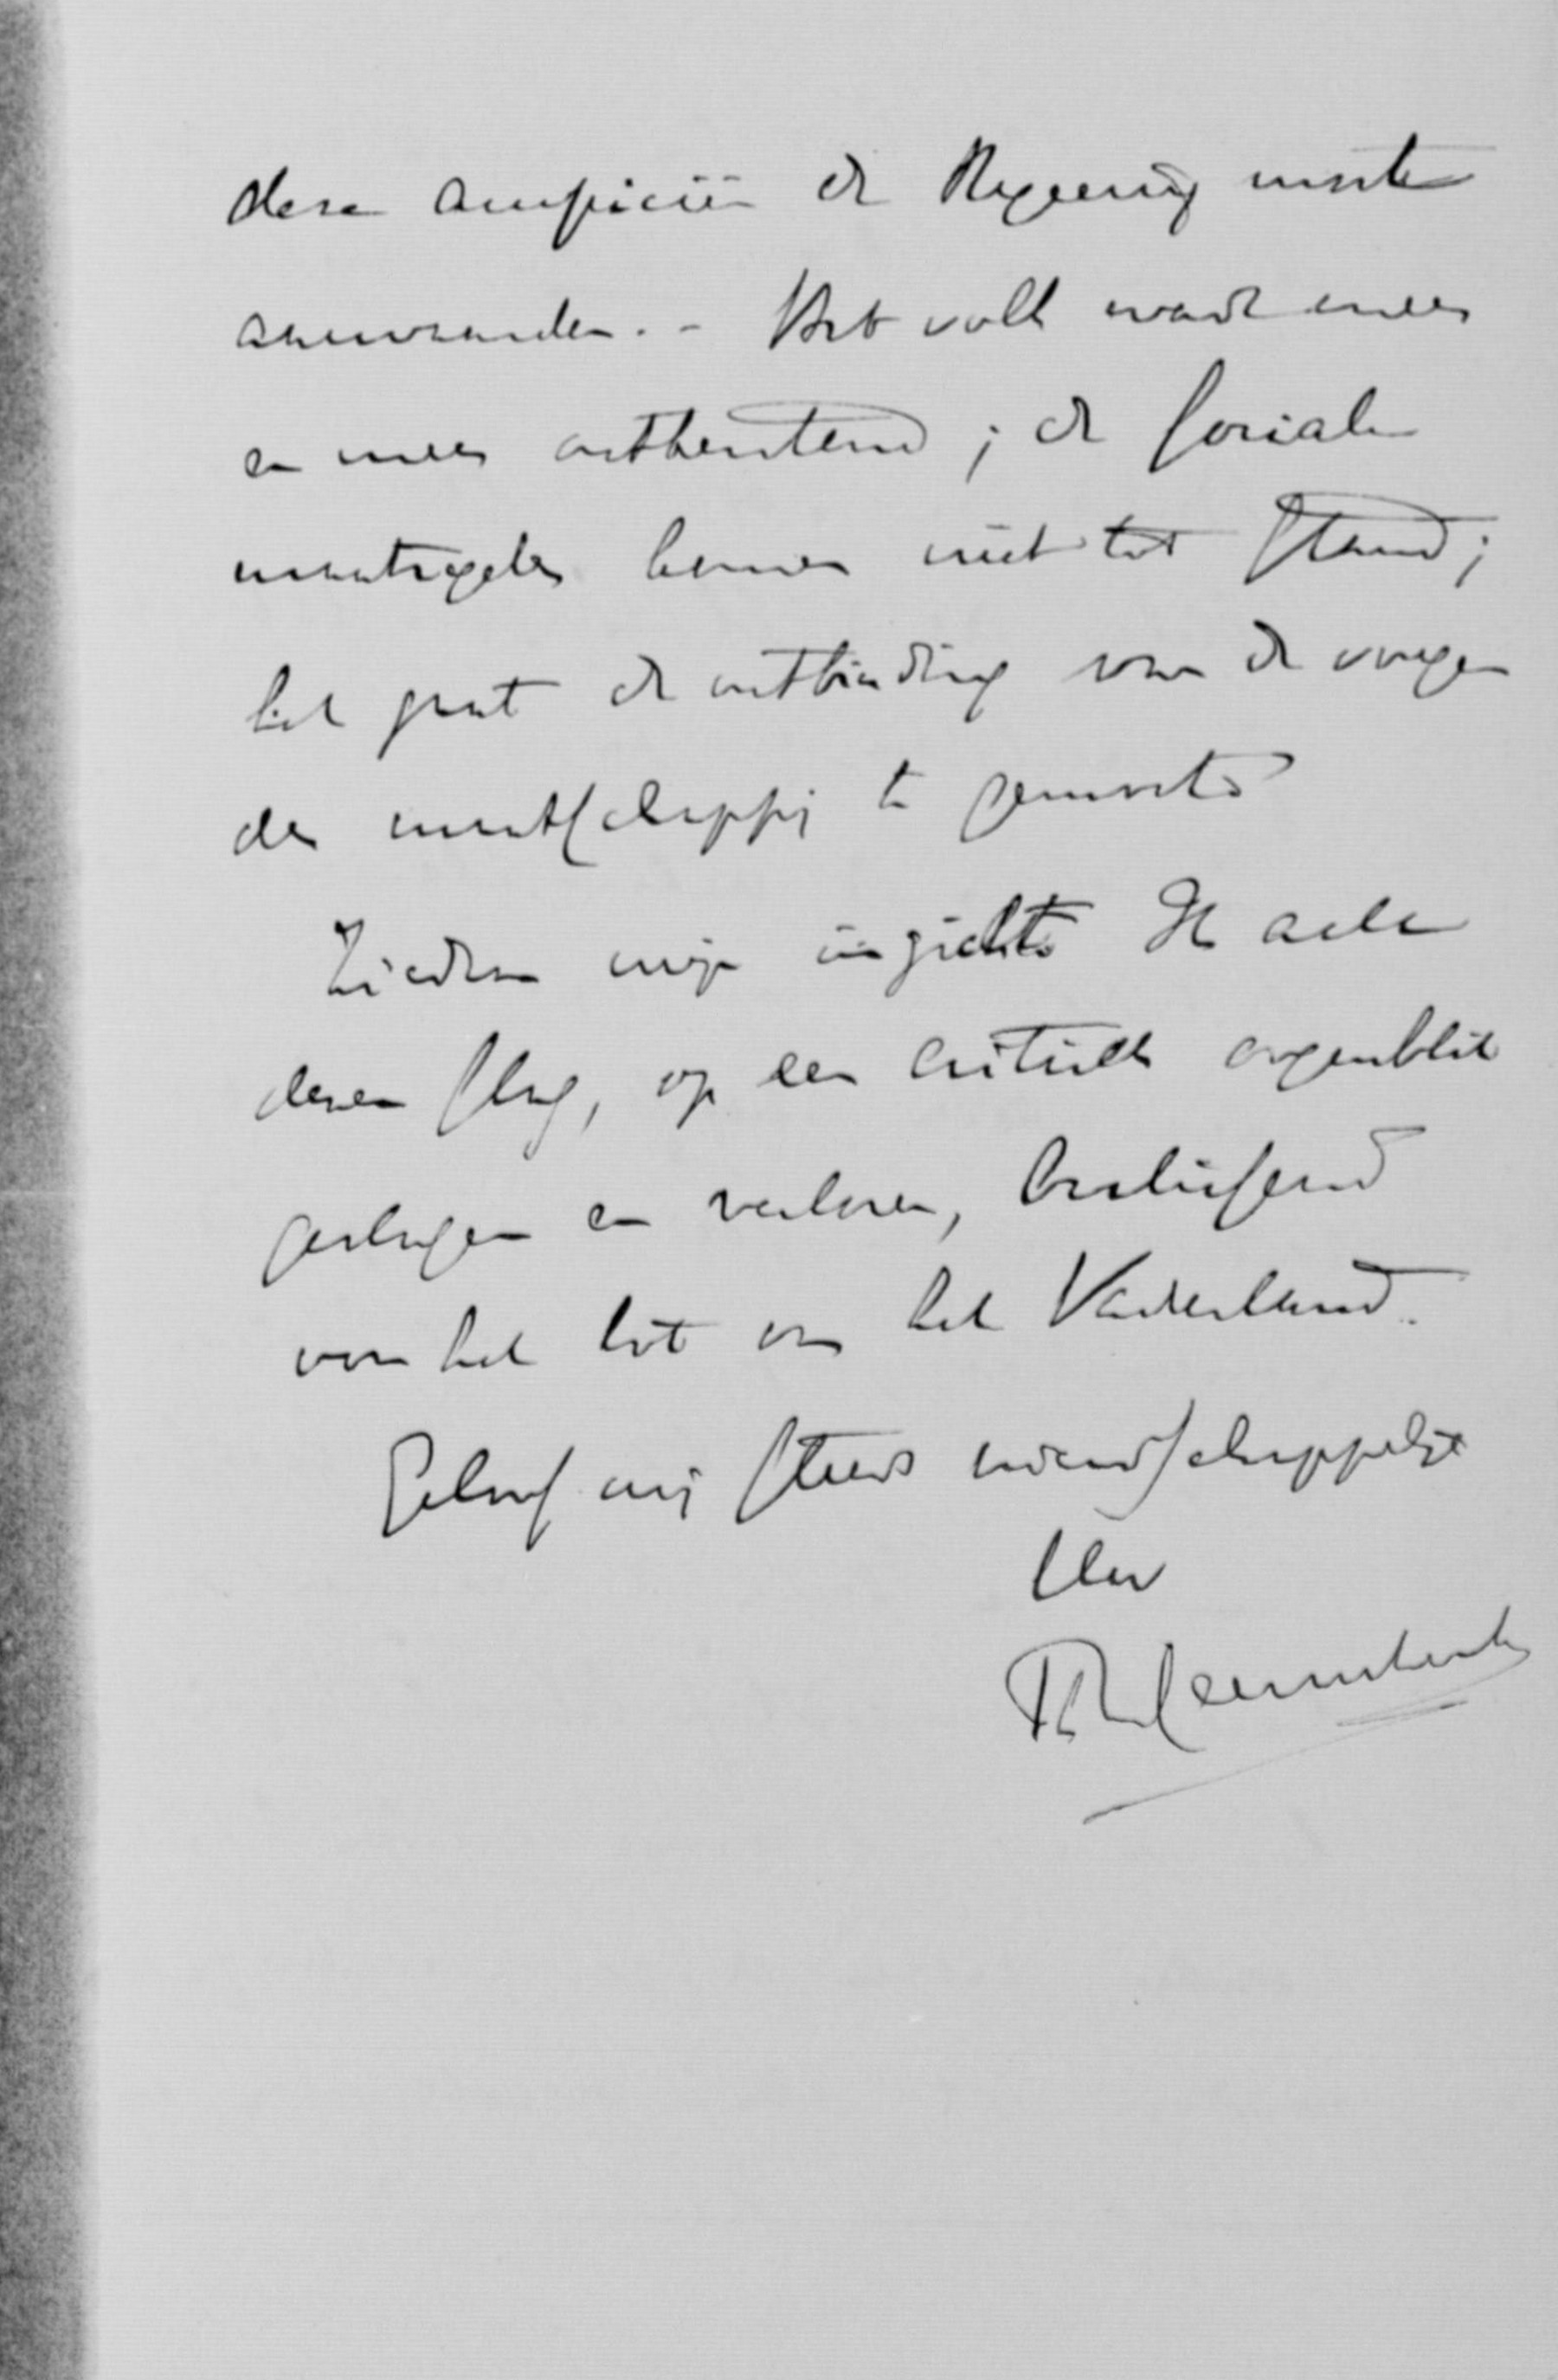 deze auspiciën de Regeering moeten
aanvaarden. - Het volk wordt meer
en meer ontkerstend; de sociale
maatregelen komen niet tot stand;
het gaat de ontbinding van de
der maatschappij te gemoet.
Ziedaar mijn inzichten. Ik acht
dezen slag, op een kritiek oogenblik
geslagen en verloren, beslissend
voor het lot van het Vaderland.
Geloof mij steeds vriendschappelijk
Uw
Th Heemskerk